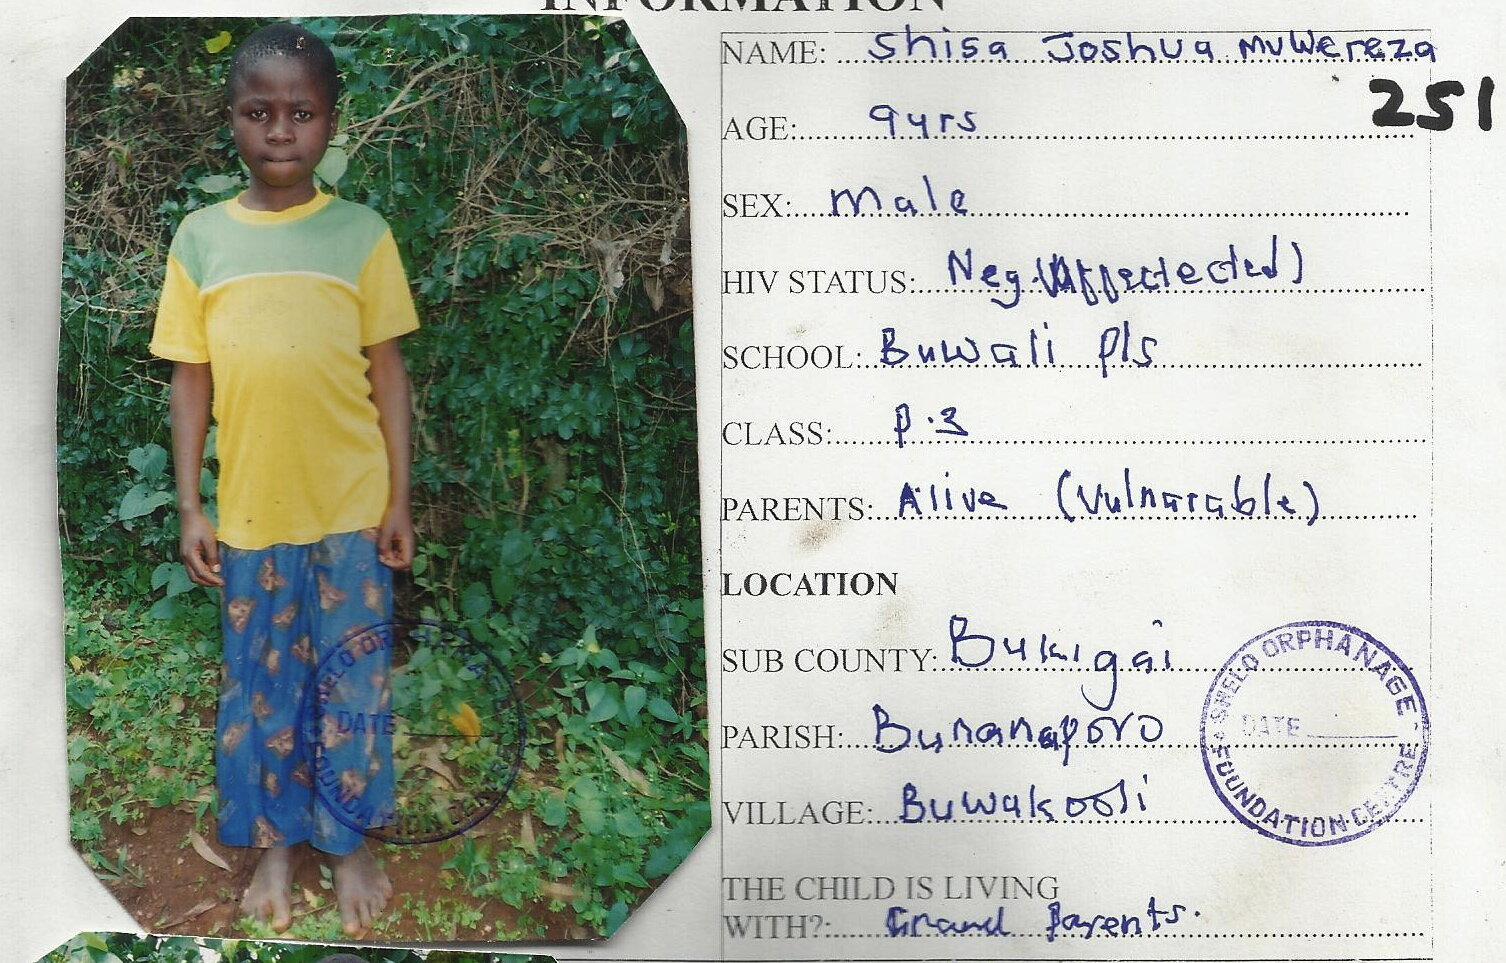 INFORMATION
NAME: Shisa Joshua Muwereza
251
AGE: 9yrs
SEX: Male
HIV STATUS: Neg (Affectected)
SCHOOL: Buwali p/s
CLASS: P.3
PARENTS: Alive (Vulnarable)
LOCATION
SUB COUNTY: Bukigai
PARISH:
VILLAGE: Buwakooli
THE CHILD IS LIVING
WITH?: Grand Parents.
SHELO ORPHANAGE
DATE
FOUNDATION CENTRE
SHELO ORPHANAGE
DATE
FOUNDATION CENTRE